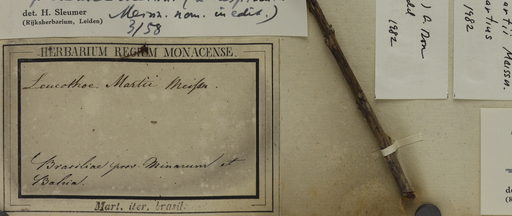 det. H. Sleumer
(Rijksherbarium, Leiden)
Meissn. nom. inedit.)
3/58
HERBARIUM REGIUM MONACENSE.
Leucothoe Martii Meissn.
Brasiliae prov. Minarum et
Bahia.
Mart. iter. brasil.
) G. Don
1982
artii Meissn.
artius
1982